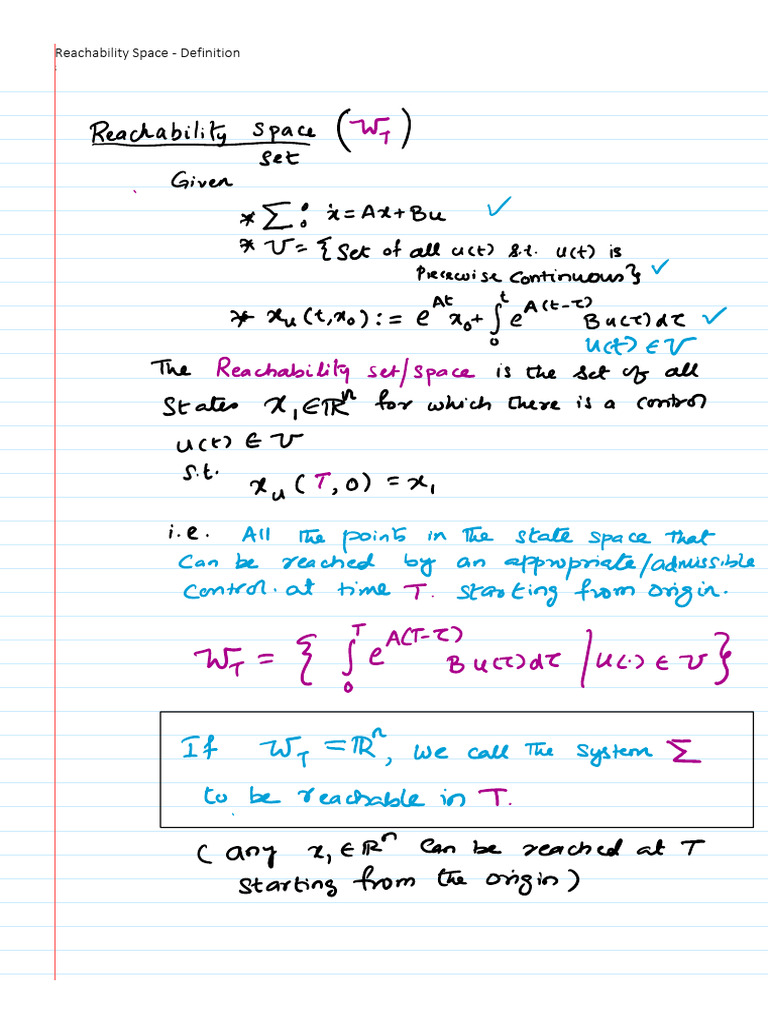 Reachability Space - Definition
Reachability space (W_T)
set
Given
* Σ : ẋ = Ax + Bu ✓
* V = { Set of all u(t) s.t. u(t) is
Piecewise continuous } ✓
* x_u (t, x_0) := e^{At} x_0 + ∫_0^t e^{A(t-τ)} B u(τ) dτ ✓
u(t) ∈ V
The Reachability set/space is the set of all
States x_1 ∈ ℝ^n for which there is a control
u(t) ∈ V
s.t.
x_u (T, 0) = x_1
i.e. All the points in the state space that
can be reached by an appropriate/admissible
control. at time T. starting from origin.
W_T = { ∫_0^T e^{A(T-τ)} B u(τ) dτ | u(.) ∈ V }
If W_T = ℝ^n, we call the system Σ
to be reachable in T.
( any x_1 ∈ ℝ^n can be reached at T
starting from the origin )